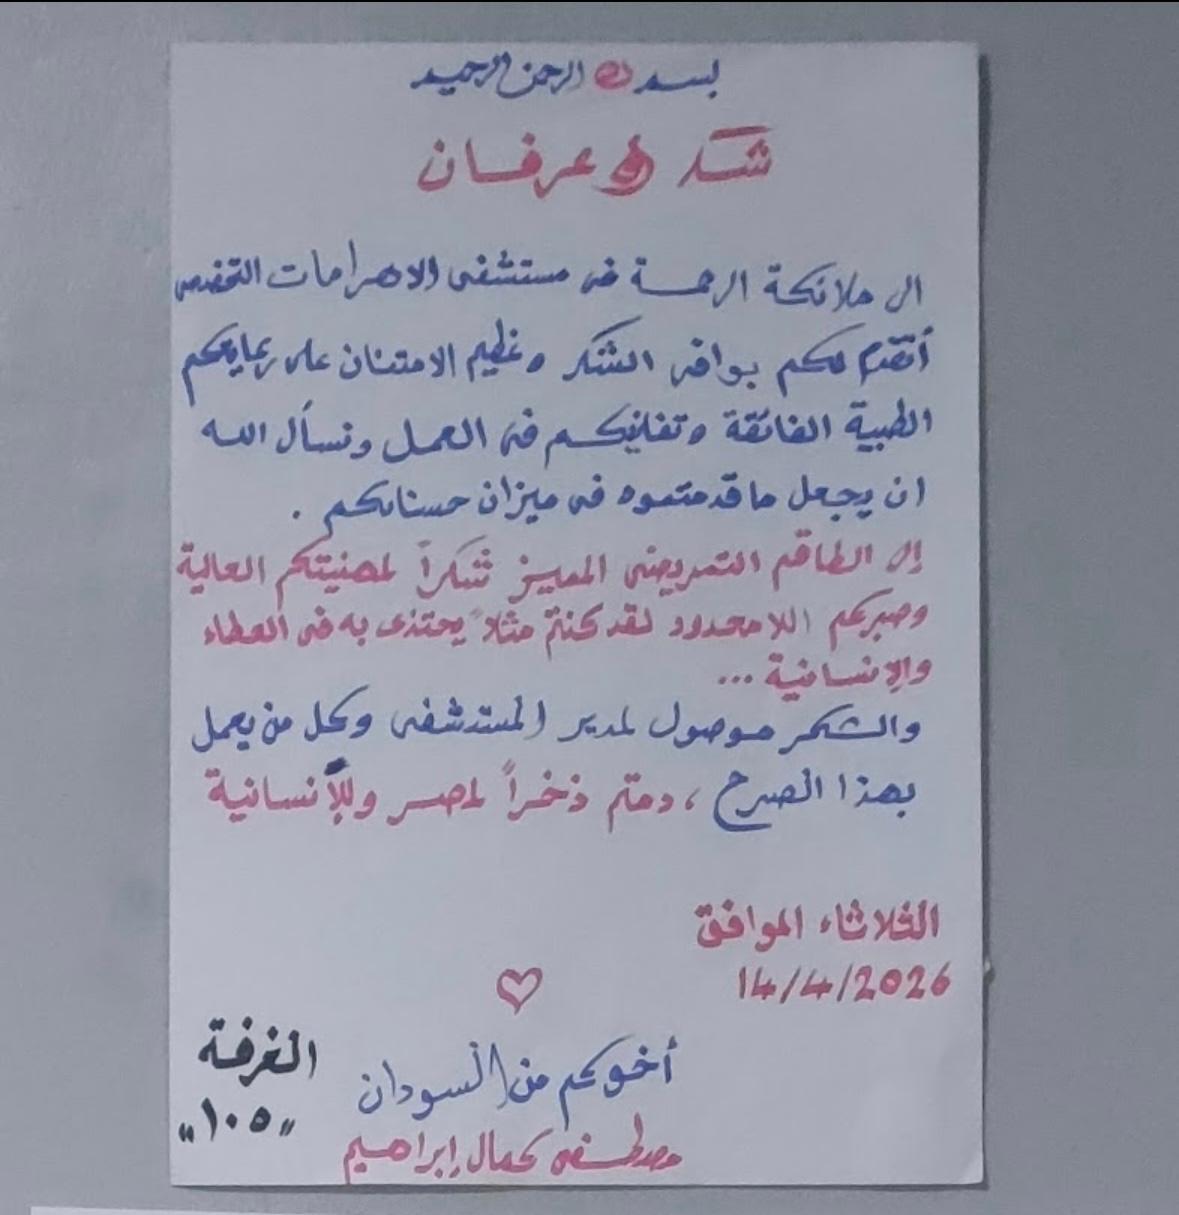 بسم الله الرحمن الرحيم
شكر و عرفان
الى ملائكة الرحمة فى مستشفى الاهرامات التخصصى
أتقدم لكم بوافر الشكر وعظيم الامتنان على رعايتكم
الطبية الفائقة وتفانيكم فى العمل ونسأل الله
ان يجعل ما قدمتموه فى ميزان حسناتكم .
إلى الطاقم التمريضى المميز شكراً لمهنيتكم العالية
وصبركم اللامحدود لقد كنتم مثلاً يحتذى به فى العطاء
والإنسانية ...
والشكر موصول لمدير المستشفى وكل من يعمل
بهذا الصرح ، دمتم ذخراً لمصر وللأنسانية
الثلاثاء الموافق
14/4/2026
أخوكم من السودان
مصطفى كمال إبراهيم
الغرفة
"١٠٥"